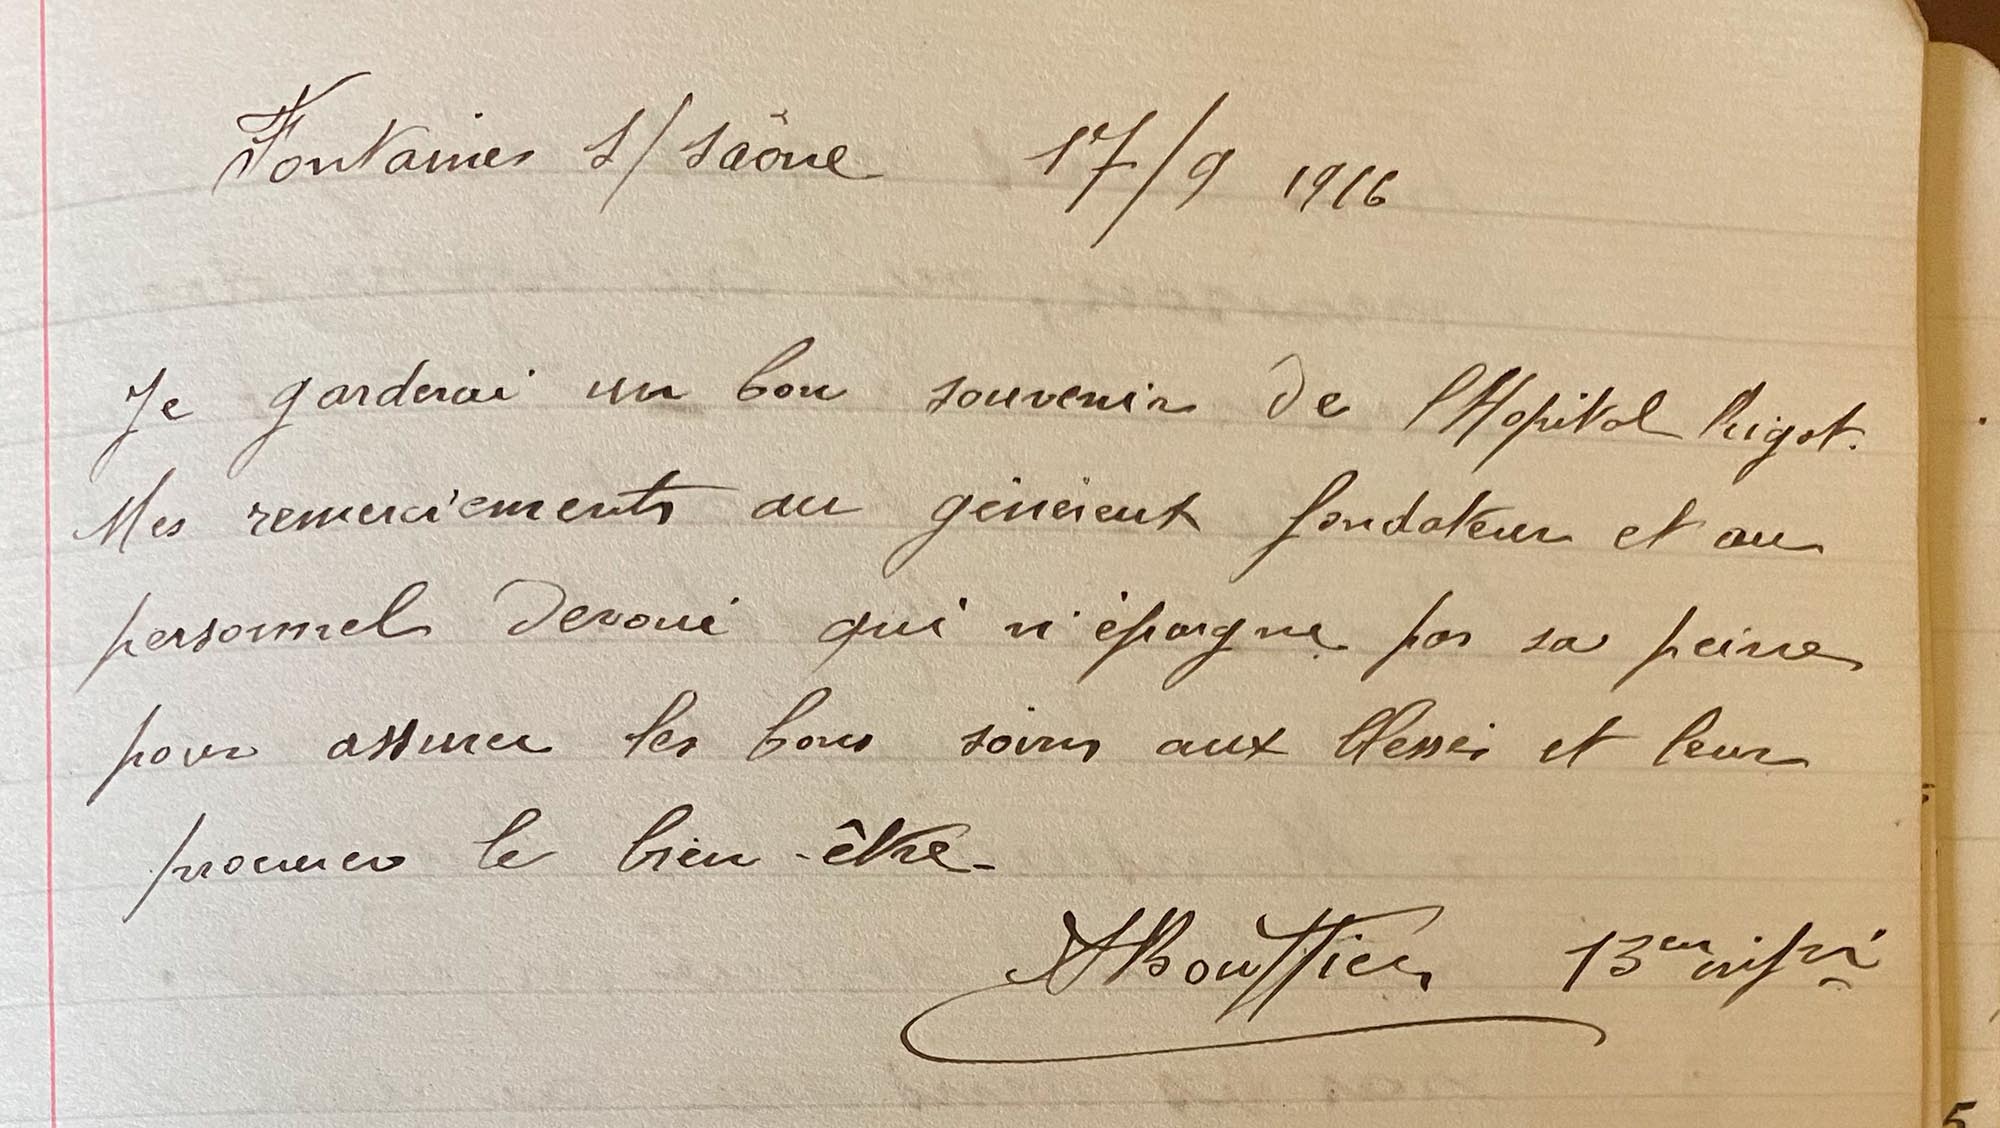 Fontaines S/Saône 17/9 1916
Je garderai un bon souvenir de l'Hopital Rigot.
Mes remerciements au généreux fondateur et au
personnel devoué qui n'épargne pas sa peine
pour assurer les bons soins aux blessés et leur
procurer le bien-être-
ABouffier 13em
5